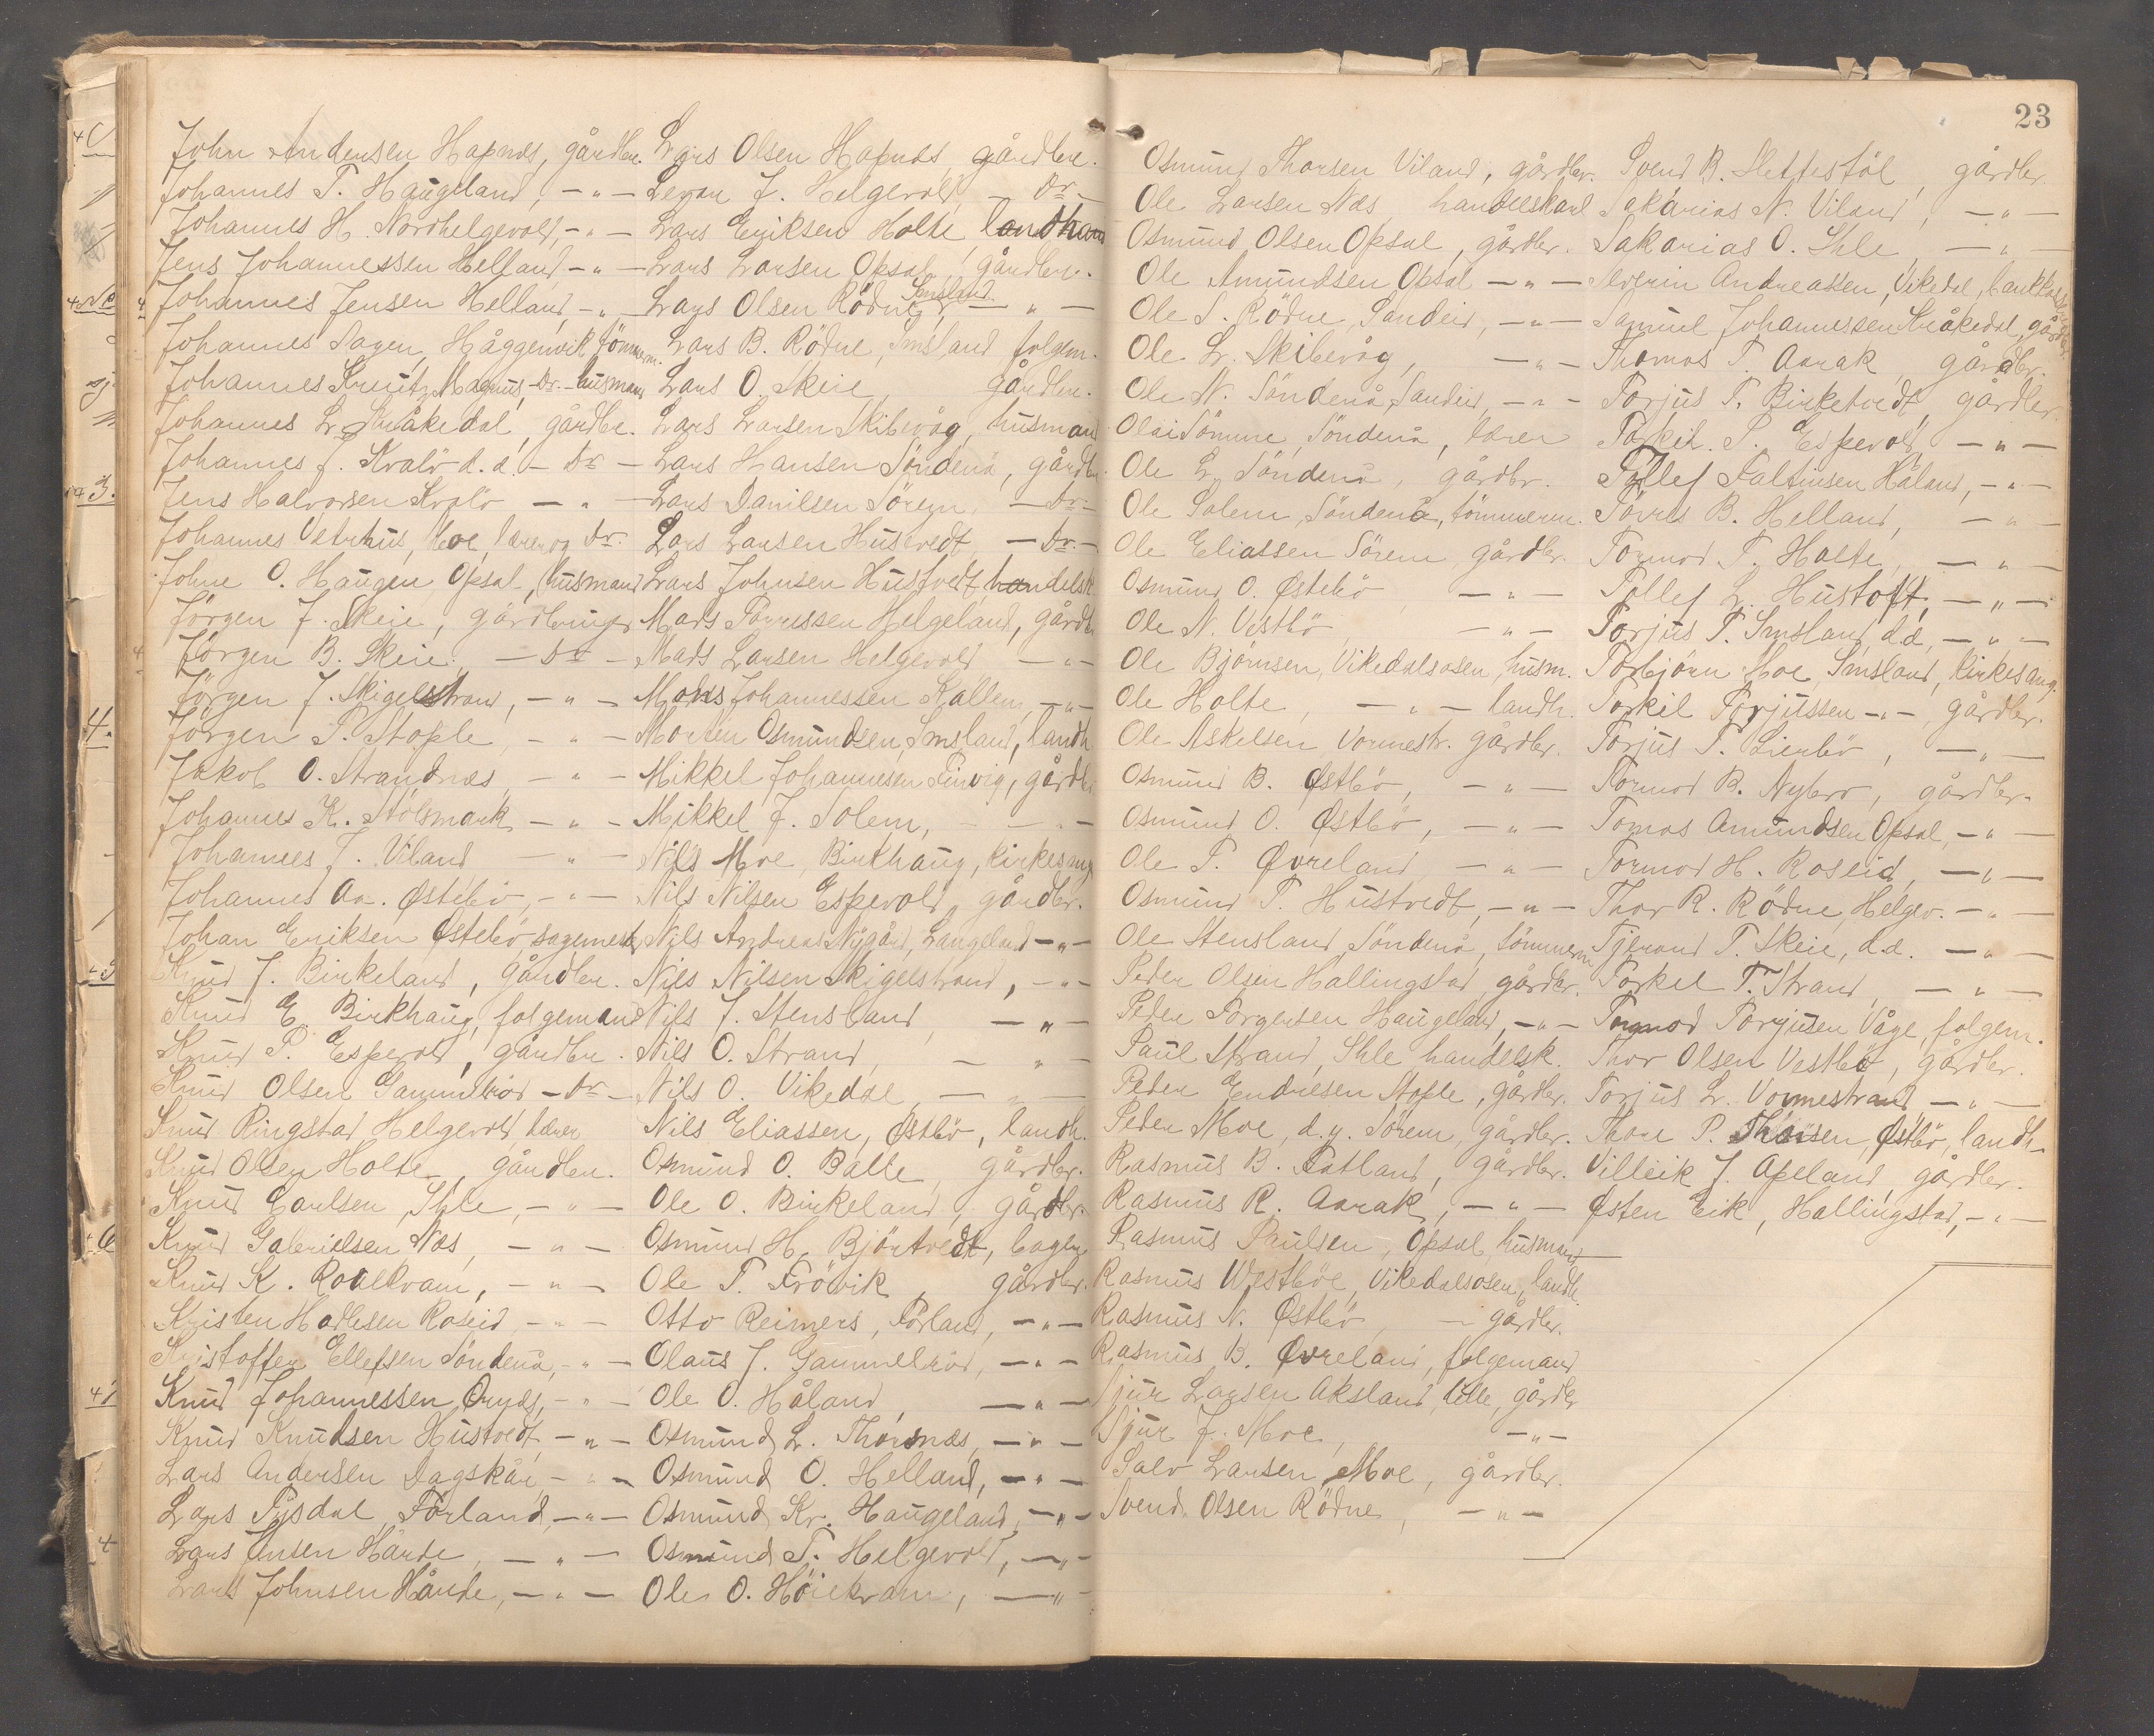 John Andersen Hapnes, gårdbr.
Johannes T. Haugeland, - " -
Johannes H. Nordhelgevold, - " -
Jens Johannessen Helland - " -
Johannes Jensen Helland, - " -
Johannes Sagen, Häggenvik tömmerm.
Johannes Kreutz Magnus, - Dr. - husmand
Johannes L. Kråkedal, gårdbr.
Johannes J. Kvalö d.e. - Dr -
Jens Halvorsen Kvalö - " -
Johannes Vetrhus, Moe, lærer og Dr.
Johne O. Haugen Opsal, husmand
Jörgen J. Skeie, gårdbruger
Jörgen B. Skeie, - Dr -
Jörgen J. Skigelstrand, - " -
Jörgen T. Stople, - " -
Jakob O. Strandnæs, - " -
Johannes K. Stölsmark - " -
Johannes J. Viland - " -
Johannes Aa. Østebö, - " -
Johan Eriksen Østebö sagemester
Knud J. Birkeland, gårdbr.
Knud E. Birkhaug, folgemand
Knud T. Espevold, gårdbr.
Knud Olsen Gammelröd - Dr -
Knud Ringstad Helgevold lærer
Knud Olsen Holte, gårdbr.
Knud Carlsen, Ihle, - " -
Knud Gabrielsen Næs, - " -
Knud K. Roalkvam, - " -
Kristen Hadlesen Roseid, - " -
Kristoffer Ellefsen Söndenå, - " -
Knud Johannessen - " -
Knud Knudsen Hustvedt, - " -
Lars Andersen Dagskår, - " -
Lars Tysdal, Förland, - " -
Lars Jensen Hårde, - " -
Lars Johnsen Hårde, - " -
Lars Olsen Hapnes gårdbr.
J. Helgevold, - Dr -
Lars Eriksen Holte, landhand
Lars Larsen Opsal, gårdbr.
Lars Olsen Rödne, Imsland - " -
Lars B. Rödne, Imsland folgem.
Lars O. Skeie, gårdbr.
Lars Larsen Skibevåg, husmand
Lars Hansen Söndenå, gårdbr.
Lars Danielsen Sörem, - Dr -
Lars Larsen Hustvedt, - Dr. -
Lars Johnsen Hustvedt, handelsk.
Mads Torressen Helgeland, gårdbr
Mads Larsen Helgevold - " -
Mads Johannessen Kallem, - " -
Morten Osmundsen, Imsland, landh
Mikkel Johannesen Finvig, gårdbr
Mikkel J. Solem, - " -
Nils Moe, Birkhaug, kirkesang
Nils Nilsen Espevold, gårdbr.
Nils Andreas Nygård, Langeland - " -
Nils Nilsen Skigelstrand, - " -
Nils J. Stensland, - " -
Nils O. Strand, - " -
Nils O. Vikedal, - " -
Nils Eliassen, Østbö, landh.
Osmund O. Balle, gårdbr.
Ole O. Birkeland, gårdbr.
Osmund H. Björtvedt, bager
Ole T. Frövik, gårdbr.
Otto Reimers, Förland, - " -
Olaus J. Gammelröd, - " -
Ole O. Håland, - " -
Osmund L. Thorsnæs, - " -
Osmund O. Helland, - " -
Osmund Kr. Haugeland, - " -
Osmund T. Helgevold, - " -
Ole O. Höiekvam, - " -
23
Osmund Thorsen Viland, gårdbr.
Ole Larsen Næs, handelskarl
Osmund Olsen Opsal, gårdbr.
Ole Amundsen Opsal - " -
Ole S. Rödne, Sandeid, - " -
Ole Lr. Skibevåg, - " -
Ole N. Söndenå Sandeid, - " -
Olai Sömme, Söndenå, lærer
Ole L. Söndenå, gårdbr.
Ole Solem, Söndenå, tömmerm.
Ole Eliassen Sörem, gårdbr.
Osmund O. Østebö, - " -
Ole N. Vestbö, - " -
Ole Björnsen, Vikedalsosen, husm.
Ole Holte, - " - landh.
Ole Askelsen Vormestr. gårdbr.
Osmund B. Østbö, - " -
Osmund O. Østbö, - " -
Ole T. Øvreland, - " -
Osmund T. Hustvedt, - " -
Ole Stensland, Söndenå, tömmerm.
Peder Olsen Hallingstad, gårdbr.
Peder Torgersen Haugeland, - " -
Paul Strand, Ihle handelsk.
Peder Endresen Stople, gårdbr.
Peder Moe, d.y. Sörem, gårdbr.
Rasmus B. Fatland, gårdbr.
Rasmus R. Aarak, - " -
Rasmus Paulsen, Opsal, husmand
Rasmus Westböe, Vikedalsosen, landh.
Rasmus N. Østbö, - gårdbr.
Rasmus B. Øvreland, folgemand
Sjur Larsen Aksland, lille, gårdbr
Sjur J. Moe, - " -
Salv Larsen Moe, gårdbr.
Svend Olsen Rödne, - " -
Svend B. Slettestöl, gårdbr.
Sakarias N. Viland, - " -
Sakarias O. Ihle, - " -
Severin Andreassen, Vikedal,
Samuel Johannessen Kråkedal, gårdbr.
Thomas T. Aarak, gårdbr.
Torjus T. Birketvedt, gårdbr.
Torkil T. Espevold, - " -
Tollef Faltinsen Håland, - " -
Törres B. Helland, - " -
Tormod T. Holte, - " -
Tollef L. Hustoft, - " -
Torjus T. Imsland, d.e. - " -
Torbjörn Moe, Imsland, kirkesang.
Torkil Torjussen - " -, gårdbr.
Torjus T. Lierbö, - " -
Tormod B. Nybro, gårdbr.
Tomas Amundsen Opsal, - " -
Tormod H. Roseid, - " -
Thor R. Rödne, Helgev. - " -
Tjerand T. Skeie, d.e. - " -
Torkel T. Strand, - " -
Tormod Torjusen Våge, folgem.
Thor Olsen Vestbö, gårdbr.
Torjus L. Vormestrand - " -
Thore P. Thorsen, Østbö, landh.
Villeik J. Apeland, gårdbr.
Østen Eik, Hallingstad, - " -